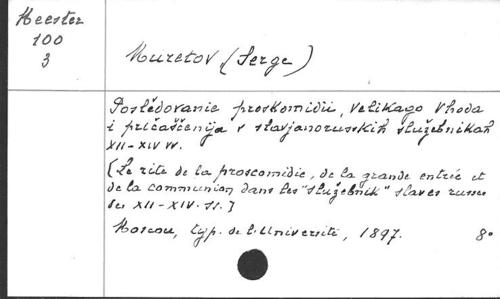 Meester
100
3
Muretov (Serge)
Poslědovanie proskomidii, velikago vhoda
i pričaščenija v slavjanorusskih služebnikah
XII-XIV vv.
[Le rite de la proscomidie, de la grande entrée et
de la communion dans les "služebnik" slaves russes
des XII-XIV. ss.]
Moscou, typ. de l'Université, 1897. 8°